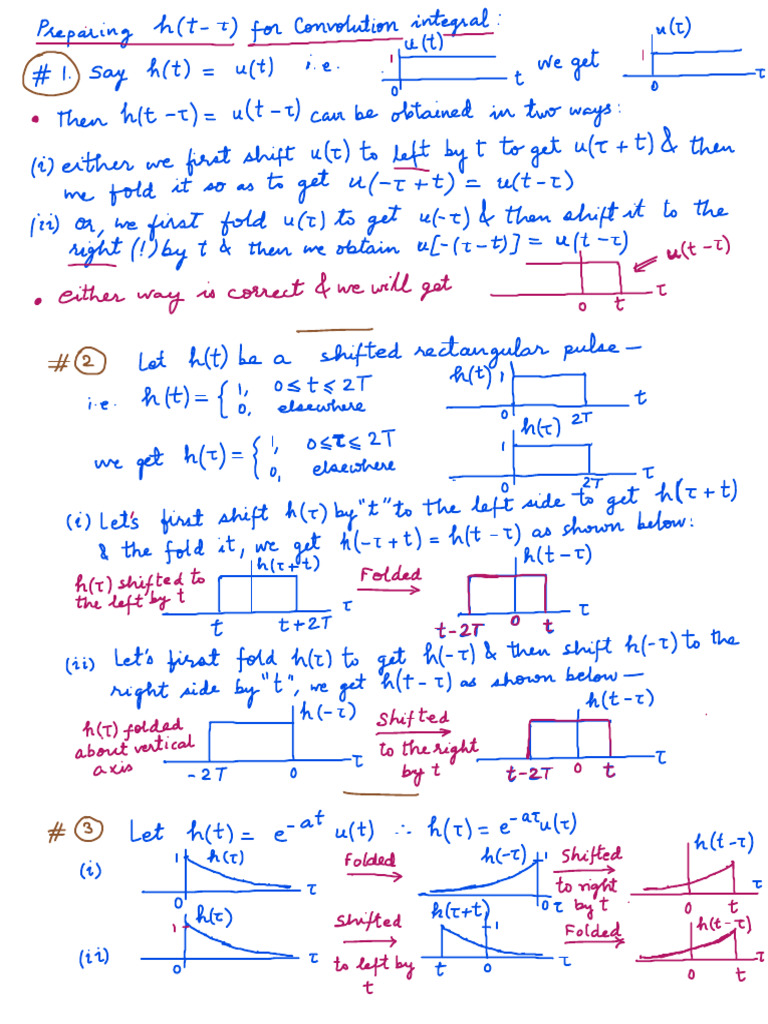 Preparing h(t-τ) for Convolution integral:
#1. Say h(t) = u(t) i.e. u(t) 1 0 t we get u(τ) 1 0 τ
• Then h(t-τ) = u(t-τ) can be obtained in two ways:
(i) either we first shift u(τ) to left by t to get u(τ+t) & then
we fold it so as to get u(-τ+t) = u(t-τ)
(ii) or, we first fold u(τ) to get u(-τ) & then shift it to the
right (!) by t & then we obtain u[-(τ-t)] = u(t-τ)
• either way is correct & we will get u(t-τ) 0 t τ
#2 Let h(t) be a shifted rectangular pulse—
i.e. h(t) = { 1, 0≤t≤2T
0, elsewhere
h(t) 1 0 2T t
we get h(τ) = { 1, 0≤τ≤2T
0, elsewhere
h(τ) 1 0 2T τ
(i) Let's first shift h(τ) by "t" to the left side to get h(τ+t)
& the fold it, we get h(-τ+t) = h(t-τ) as shown below:
h(τ) shifted to
the left by t
h(τ+t) t t+2T τ
Folded
h(t-τ) t-2T 0 t τ
(ii) Let's first fold h(τ) to get h(-τ) & then shift h(-τ) to the
right side by "t", we get h(t-τ) as shown below—
h(τ) folded
about vertical
axis
h(-τ) -2T 0 τ
Shifted
to the right
by t
h(t-τ) t-2T 0 t τ
#3 Let h(t) = e^-at u(t) ∴ h(τ) = e^-aτ u(τ)
(i) 1 h(τ) 0 τ
Folded
h(-τ) 1 0 τ
Shifted
to right
by t
h(t-τ) 0 t τ
(ii) 1 h(τ) 0 τ
Shifted
to left by
t
h(τ+t) 1 t 0 τ
Folded
h(t-τ) 0 t τ